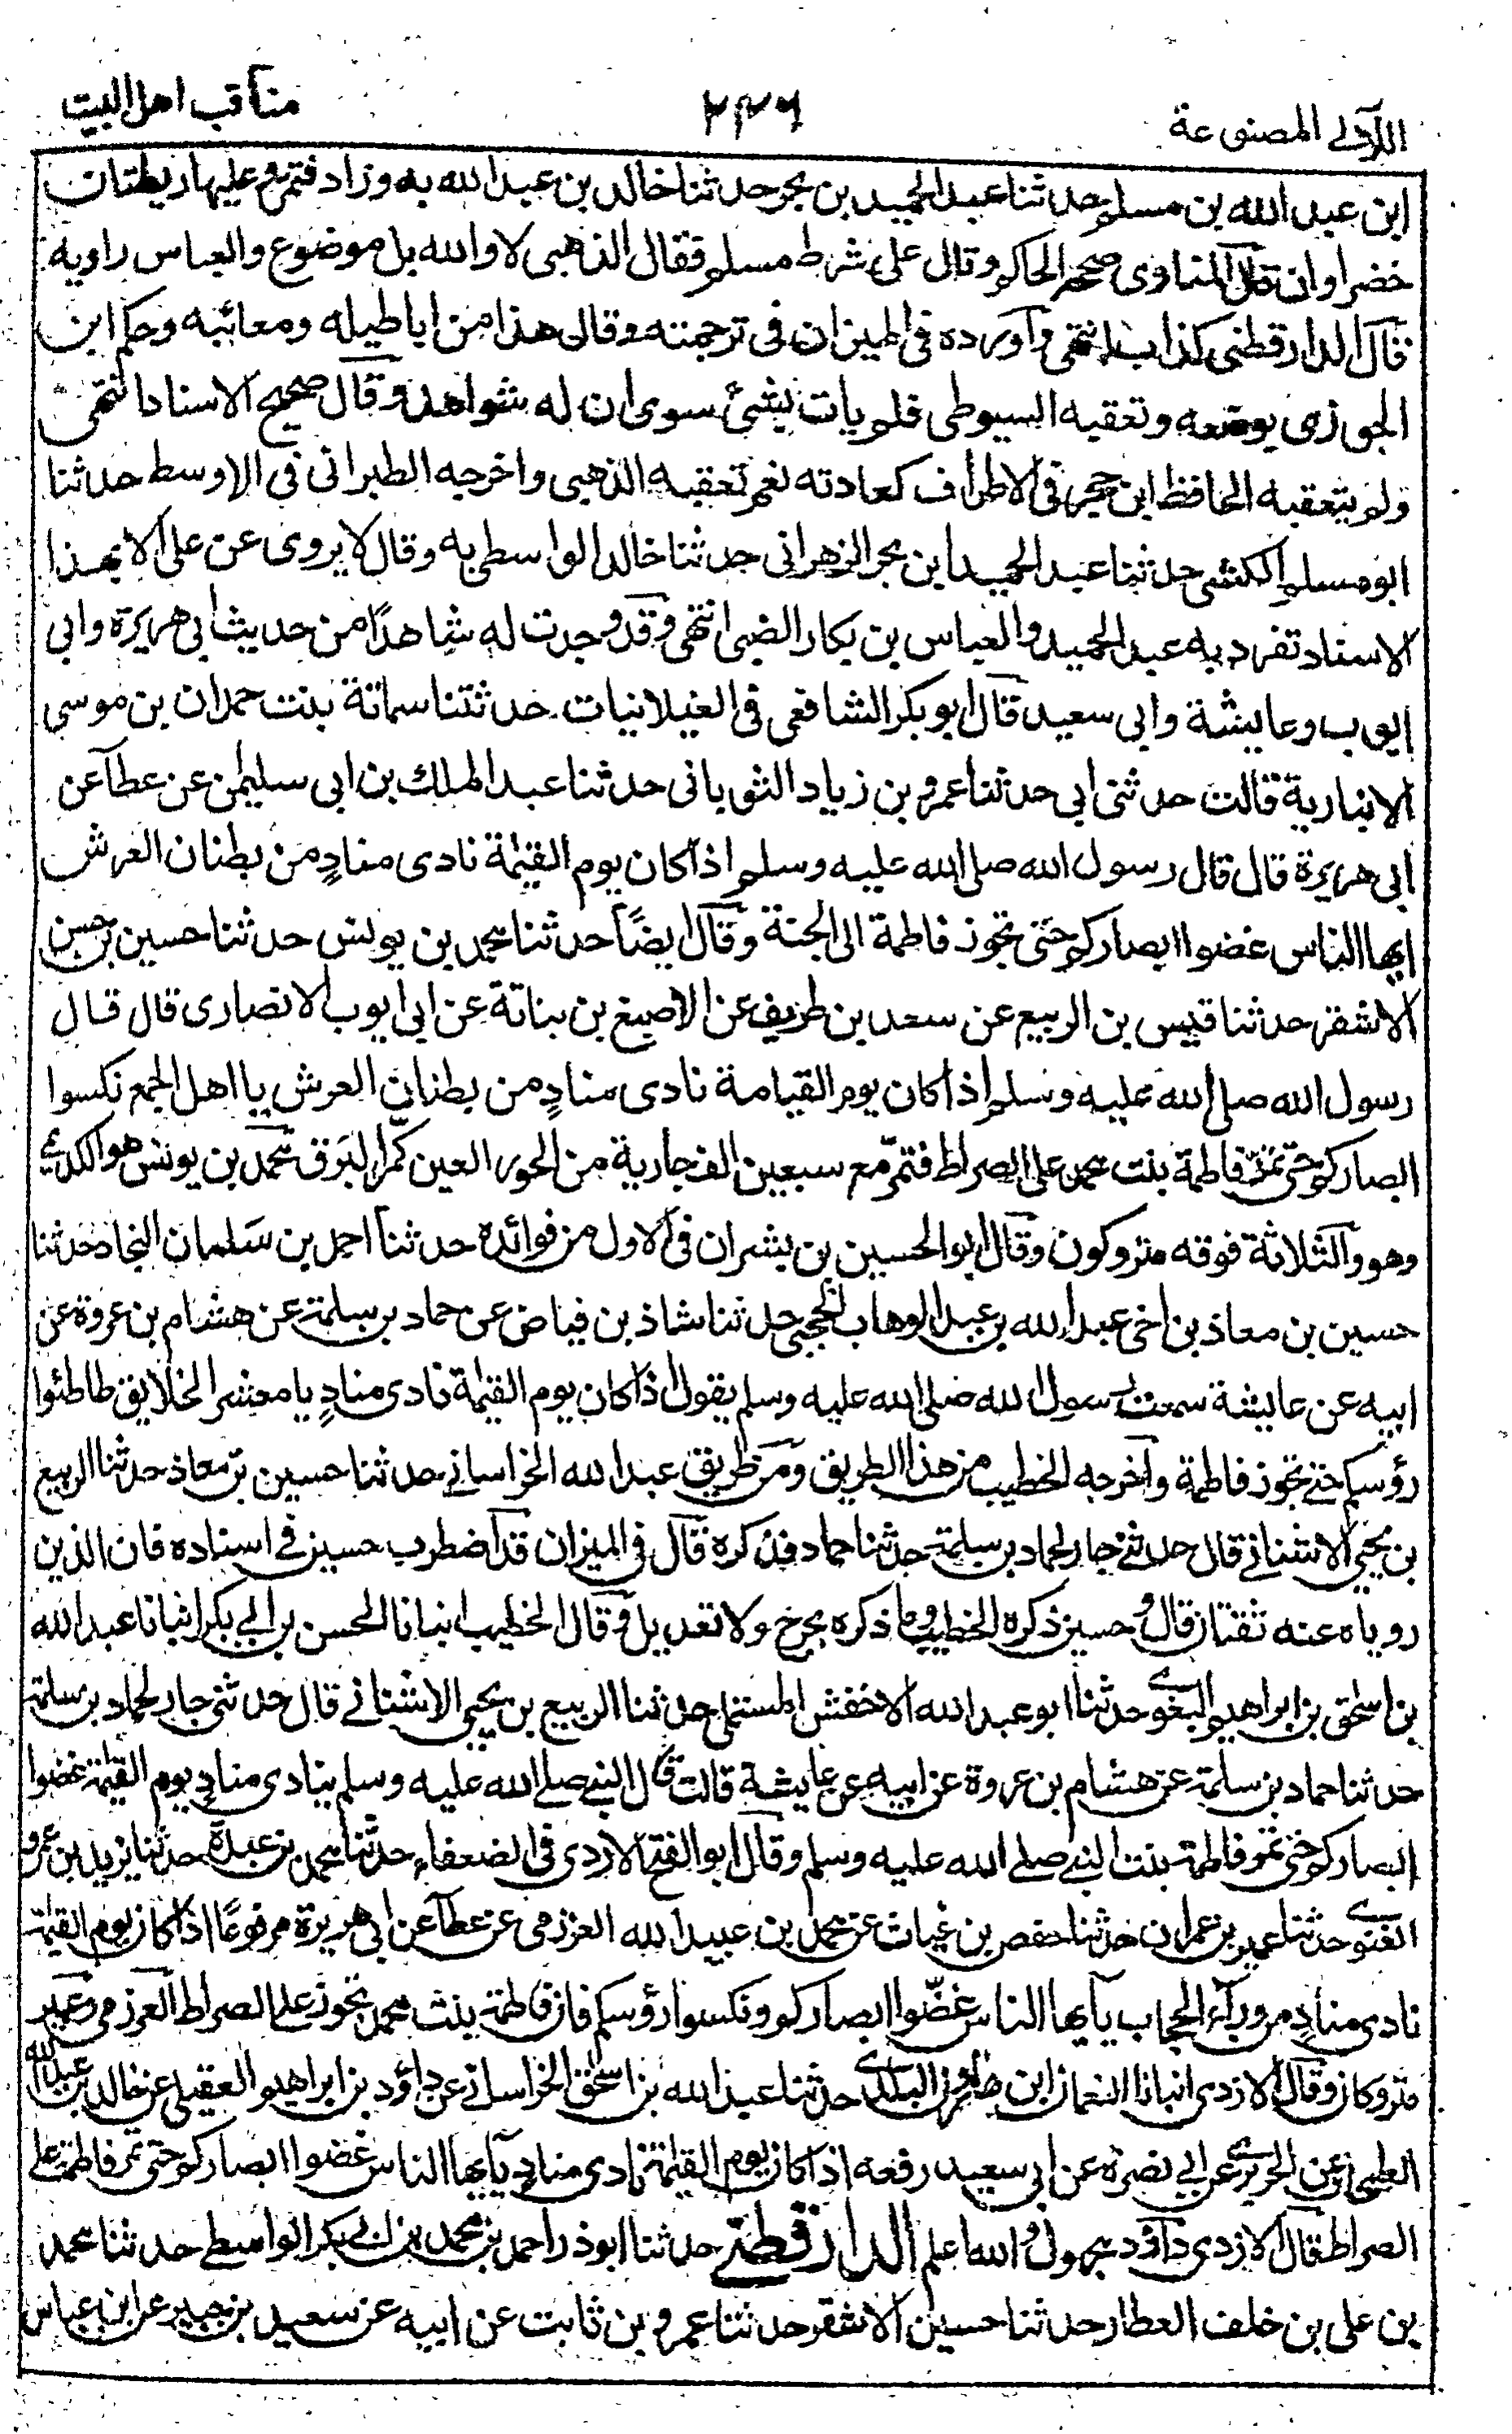 اللآلى المصنوعة
۲۳۶
مناقب اهل البيت
ابن عبد الله بن مسلم حدثنا عبد الحميد بن بحر حدثنا خالد بن عبد الله به وزاد فتمر وعليها ريطتان
خضراوان قال المناوى صححه الحاكم وقال على شرط مسلم فقال الذهبى لا والله بل موضوع والعباس راويه
قال الدارقطنى كذاب انتهى وآورده فى الميزان فى ترجمته وقال هذا من اباطيله ومعائبه وحكم ابن
الجوزى بوضعه وتعقبه السيوطى فلم يات بشئ سوى ان له شواهد وقال صحيح الاسناد انتهى
ولم يتعقبه الحافظ ابن حجر فى الاطراف كعادته نعم تعقبه الذهبى واخرجه الطبرانى فى الاوسط حدثنا
ابو مسلم الكشى حدثنا عبد الحميد ابن بحر الزهرانى حدثنا خالد الواسطى به وقال لا يروى عن على الا بهذا
الاسناد تفرد به عبد الحميد والعباس بن بكار الضبى انتهى وقد وجدت له شاهدًا من حديث ابى هريرة وابى
ايوب وعايشة وابى سعيد قال ابو بكر الشافعى فى الغيلانيات حدثتنا سمانة بنت حمدان بن موسى
الانبارية قالت حدثنى ابى حدثنا عمرو بن زياد الثوبانى حدثنا عبد الملك بن ابى سليمٰن عن عطآ عن
ابى هريرة قال قال رسول الله صلى الله عليه وسلم اذا كان يوم القيٰمة نادى منادٍ من بطنان العرش
ايها الناس غضوا ابصاركم حتى تجوز فاطمة الى الجنة وقال ايضًا حدثنا محمد بن يونس حدثنا حسين بن حسن
الاشقر حدثنا قيس بن الربيع عن سعد بن طريف عن الاصبغ بن نباتة عن ابى ايوب الانصارى قال قال
رسول الله صلى الله عليه وسلم اذا كان يوم القيامة نادى منادٍ من بطنان العرش يا اهل الجمع نكسوا
ابصاركم حتى تمرّ فاطمة بنت محمد على الصراط فتمرّ مع سبعين الف جارية من الحور العين كمّر البَرق محمد بن يونس هو الكديمى
وهو والثلاثة فوقه متروكون وقال ابو الحسين بن بشران فى الاول من فوائده حدثنا احمد بن سَلمان النجاد حدثنا
حسين بن معاذ بن اخى عبد الله بن عبد الوهاب الحجبى حدثنا شاذ بن فياض عن حماد بن سلمة عن هشام بن عروة عن
ابيه عن عايشة سمعت رسول الله صلى الله عليه وسلم يقول اذا كان يوم القيٰمة نادى منادٍ يا معشر الخلايق طاطئوا
رؤسكم حتى تجوز فاطمة وآخرجه الخطيب من هذا الطريق ومن طريق عبد الله الخراسانے حدثنا حسين بن معاذ حدثنا الربيع
بن يحيى الاشنانے قال حدثنے جار لحماد بن سلمة حدثنا حماد فذكره قال فى الميزان قد اضطرب حسين فے اسناده فان الذين
روياه عنه ثقتان قال و حسين ذكره الخطيب وما ذكره بجرح ولا تعديل وقال الخطيب انبانا الحسن بن ابى بكر انبانا عبد الله
بن اسحٰق بن ابراهيم البغوى حدثنا ابو عبد الله الاخفش المستملى حدثنا الربيع بن يحيى الاشنانے قال حدثنى جار لحماد بن سلمة
حدثنا حماد بن سلمة عن هشام بن عروة عن ابيه عن عايشة قالت قال النبے صلے الله عليه وسلم ينادى منادٍ يوم القيٰمة غضوا
ابصاركم حتى تمر فاطمة بنت النبے صلے الله عليه وسلم وقال ابو الفتح الازدى فى الضعفاء حدثنا محمد بن عبدة حدثنا يزيد بن عمرو
الغنوى حدثنا عمير بن عمران حدثنا حفص بن غياث عن محمد بن عبيد الله العرزمى عن عطآ عن ابى هريرة مرفوعًا اذا كان يوم القيٰمة
نادى منادٍ من ورآء الحجاب يآيها الناس غضّوا ابصاركم ونكسوا رؤسكم فان فاطمة بنت محمد تجوز على الصراط العرزمى وعمير
متروكان وقال الازدى انبانا النعمان ابن البلدى حدثنا عبد الله بن اسحٰق الخراسانے عن داؤد بن ابراهيم العقيلى عن خالد بن عبد الله
الطحان عن الجريرى عن ابى نضرة عن ابى سعيد رفعه اذا كان يوم القيٰمة نادى منادٍ يآيها الناس غضوا ابصاركم حتى تمر فاطمة على
الصراط قال الازدى داؤد مجهول والله اعلم الدارقطنے حدثنا ابوذر احمد بن محمد بن ابى بكر الواسطے حدثنا محمد
بن على بن خلف العطار حدثنا حسين الاشقر حدثنا عمرو بن ثابت عن ابيه عن سعيد بن جبير عن ابن عباس